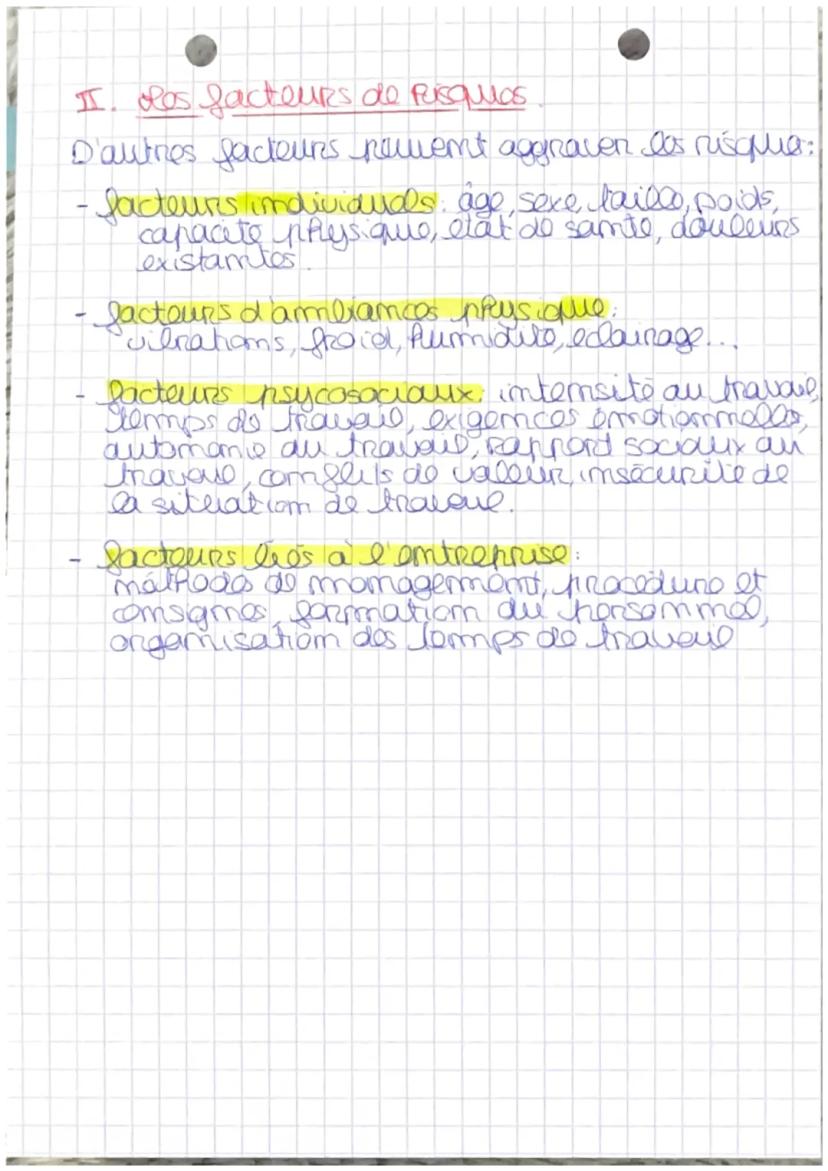 II. Les facteurs de risques.
D'autres facteurs peuvent aggraver les risques:
- facteurs individuels: âge, sexe, taille, poids,
capacité physique, état de santé, douleurs
existantes.
- facteurs d'ambiances physique:
vibrations, froid, humidité, eclairage...
- facteurs psycosociaux: intensité au travail,
temps de travail, exigences émotionnelles,
autonomie au travail, rapport sociaux au
travail, conflits de valeur, insécurité de
la situation de travail.
- facteurs liés à l'entreprise:
méthodes de management, procédure et
consignes, formation du personnel,
organisation des temps de travail